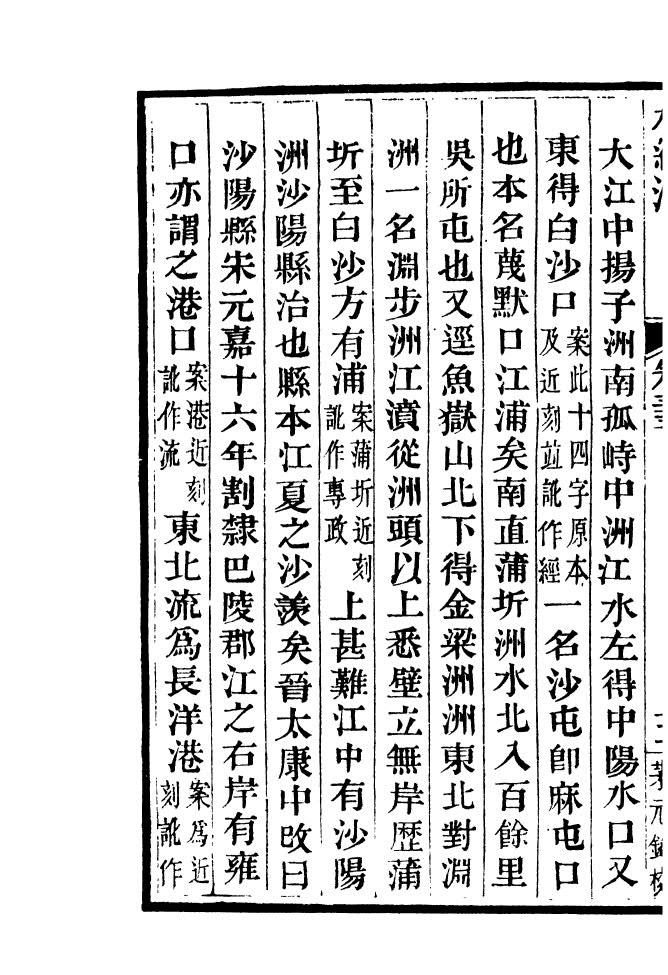 大江中揚子洲南孤峙中洲江水左得中陽水口又
東得白沙口案此十四字原本及近刻竝訛作經一名沙屯卽麻屯口
也本名蔑默口江浦矣南直蒲圻洲水北入百餘里
吳所屯也又逕魚嶽山北下得金梁洲洲東北對淵
洲一名淵步洲江濆從洲頭以上悉壁立無岸歷蒲
圻至白沙方有浦案蒲圻近刻訛作專政上甚難江中有沙陽
洲沙陽縣治也縣本江夏之沙羨矣晉太康中改曰
沙陽縣宋元嘉十六年割隸巴陵郡江之右岸有雍
口亦謂之港口案港近刻訛作流東北流爲長洋港案爲近刻訛作